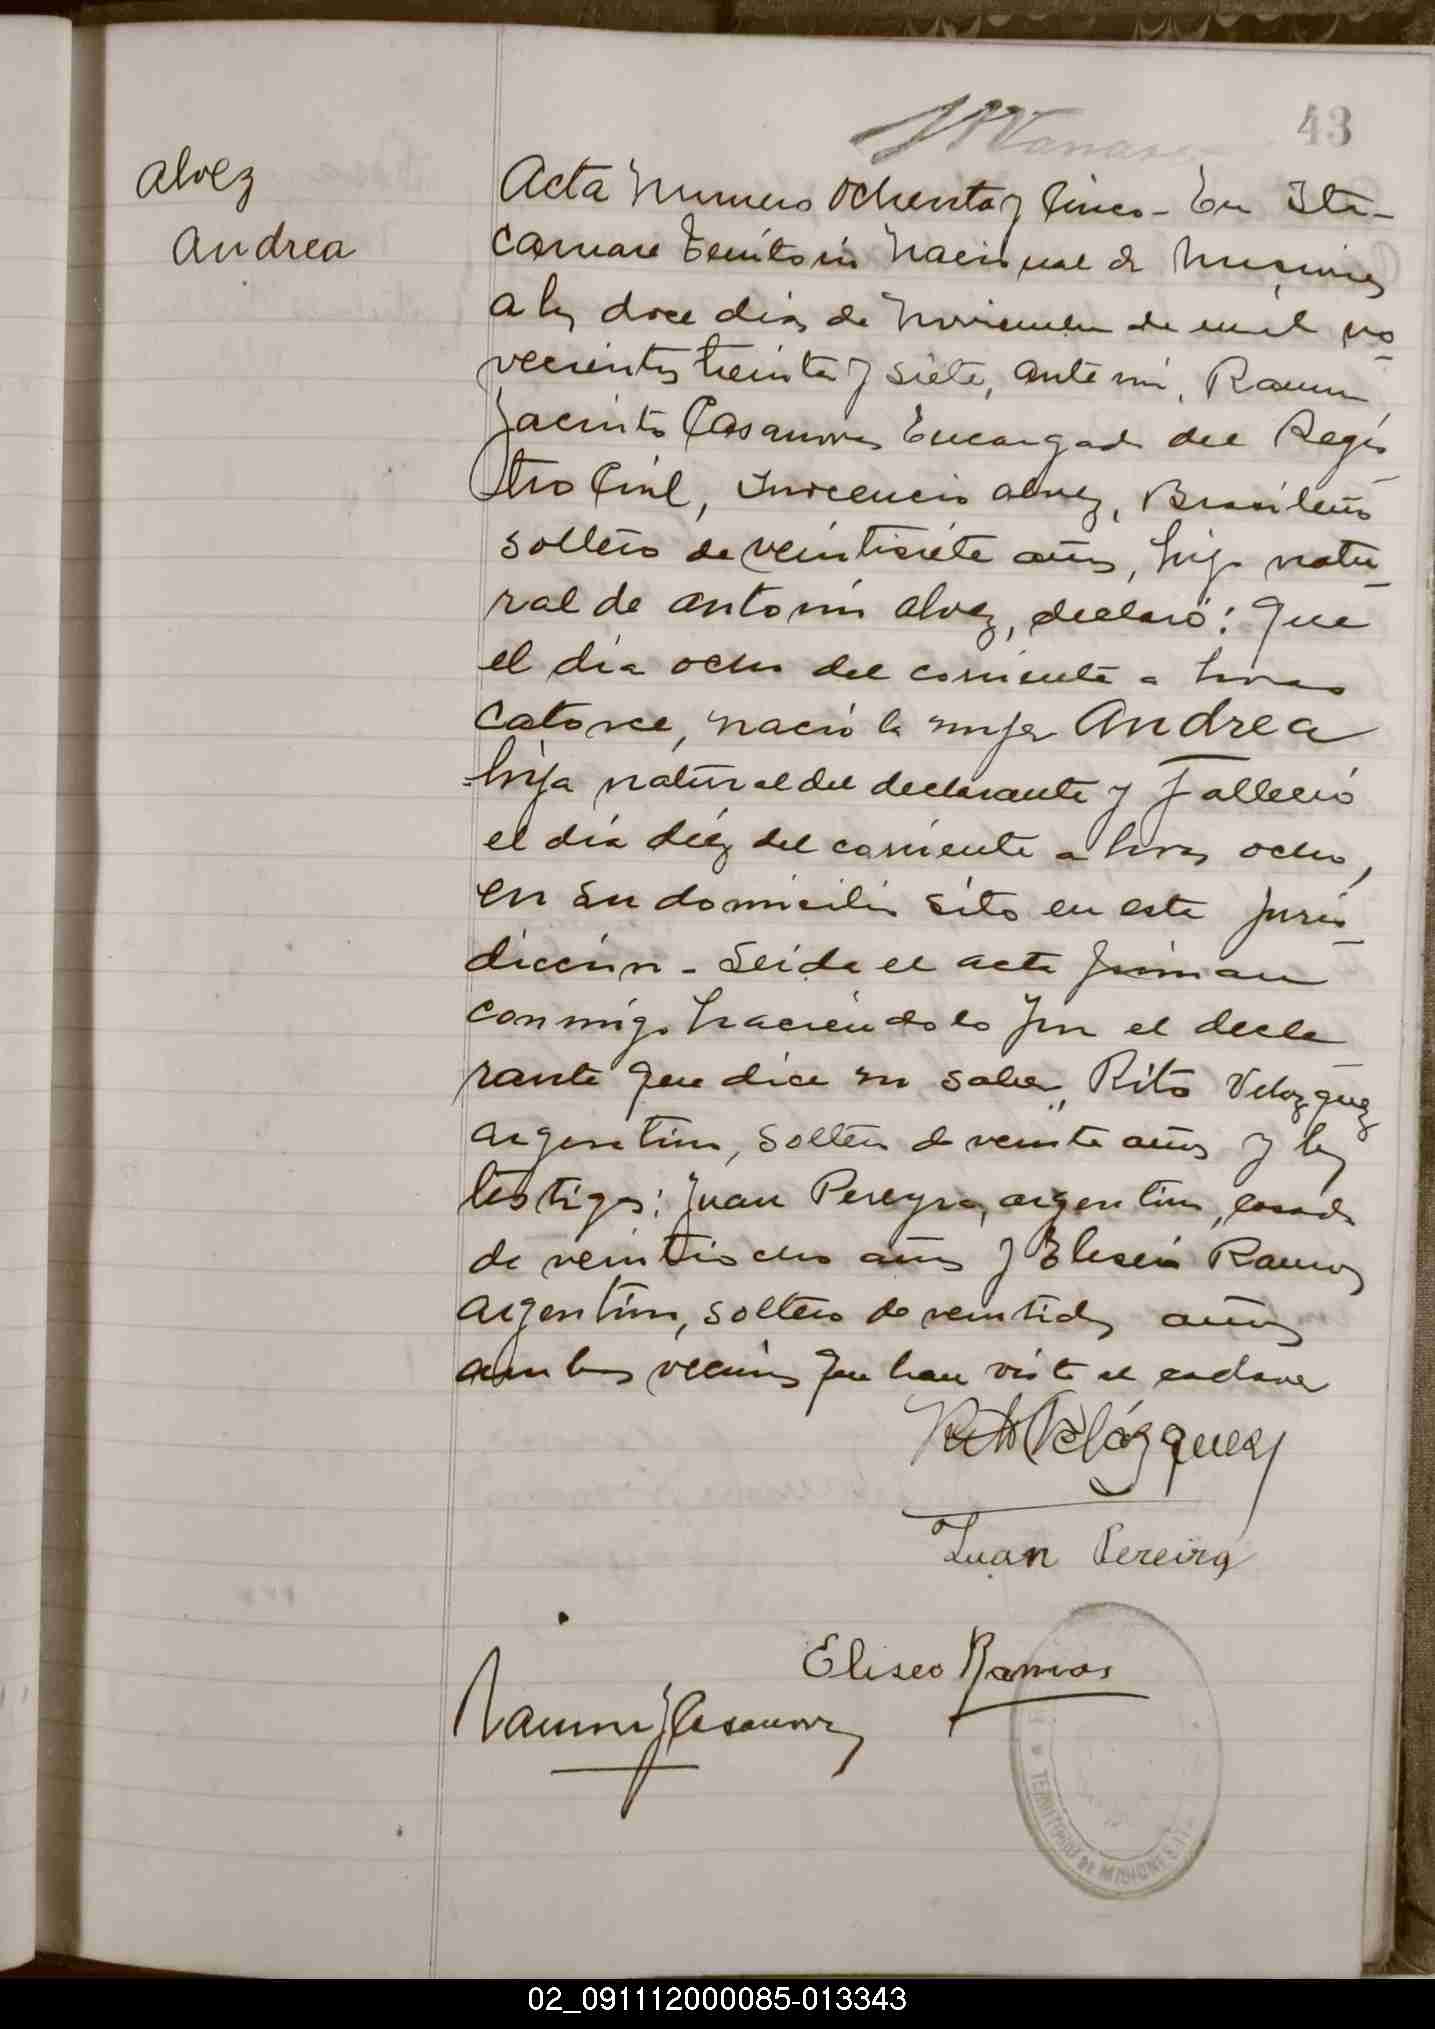 43
Alvez
Andrea
Acta Numero Ochenta y Cinco - En Ita-
caruare Territorio Nacional de Misiones
a los doce dias de Noviembre de mil no-
vecientos treinta y siete, ante mi, Ramon
Jacinto Casanova Encargado del Regis-
tro Civil, Inocencio Alvez, Brasileño
soltero de veintisiete años, hijo natu-
ral de Antonio Alvez, declaró: Que
el dia ocho del corriente a horas
catorce, nació la mujer Andrea
hija natural del declarante y Falleció
el día diéz del corriente a horas ocho,
en su domicilio sito en esta juris-
dicción - Leida el acta firman
conmigo haciendolo por el decla-
rante que dice no saber, Rito Velozquez
argentino, soltero de veinte años y los
testigos: Juan Pereyra, argentino, casado
de veintiocho años y Eliseo Ramos
argentino, soltero de veintidos años
ambos vecinos que han visto el cadaver
Rito Velázquez
Juan Pereira
Eliseo Ramos
Ramon J Casanova
TERRITORIO DE MISIONES
02_091112000085-013343